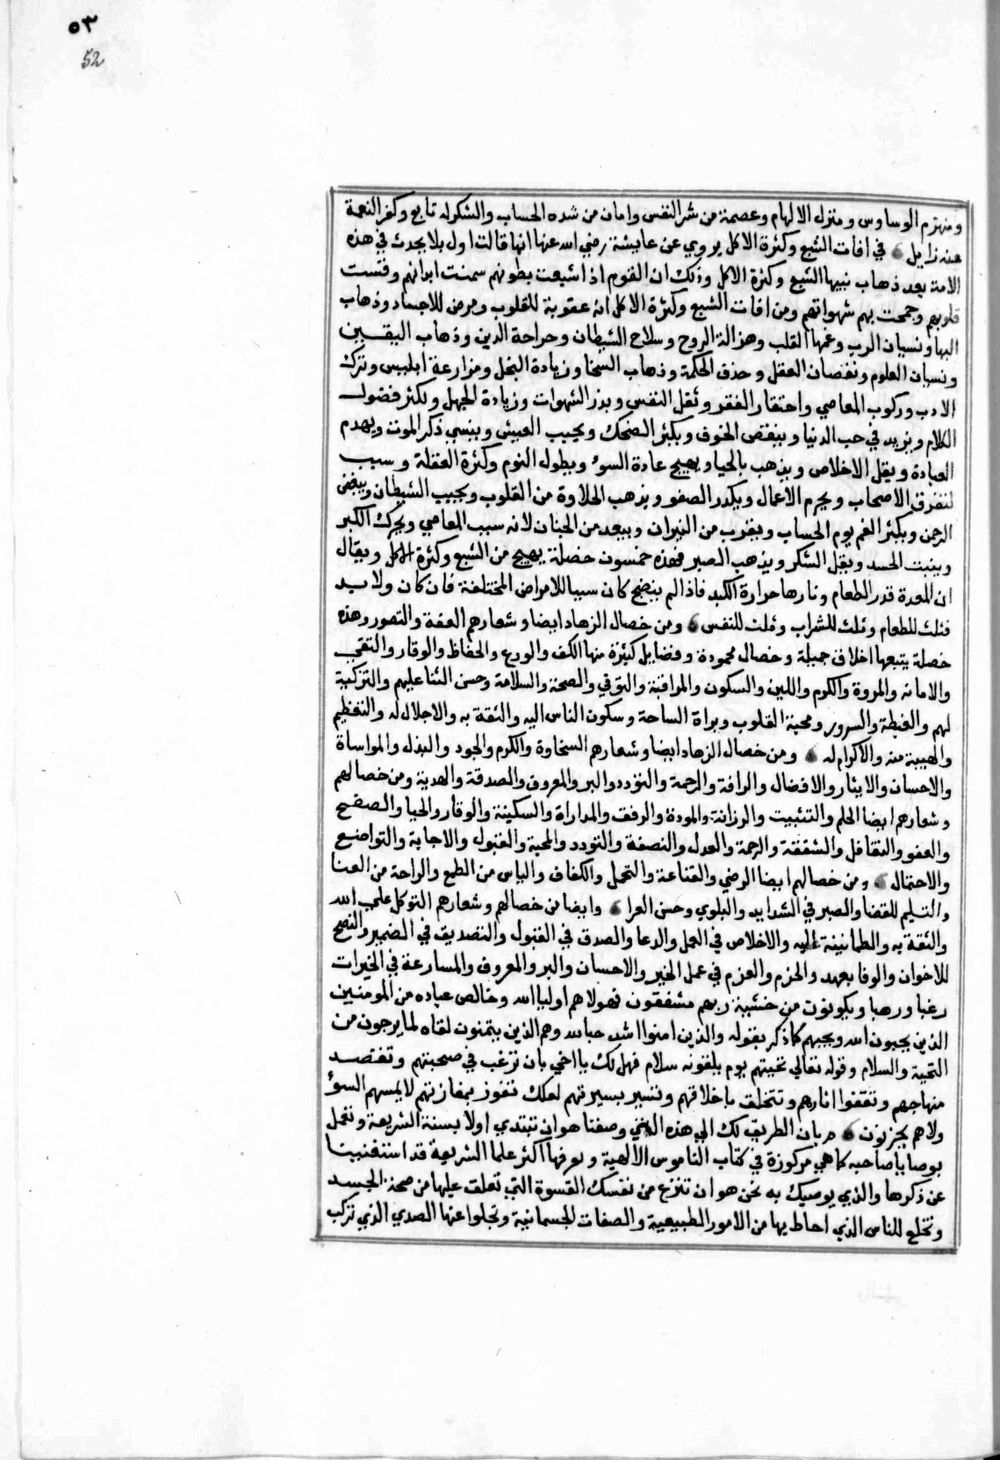 ٥٣
52
ومنهزم الوساوس ومنزل الالهام وعصمة من شر النفس وامان من شده الحساب والشكر له تابع وكفر النعمة
عنه زايل في افات الشبع وكثرة الاكل يروي عن عايشة رضي الله عنها انها قالت اول بلا يحدث في هذه
الامة بعد ذهاب نبيها الشبع وكثرة الاكل وذلك ان القوم اذا شبعت بطونهم سمنت ابدانهم وقست
قلوبهم وجمحت بهم شهواتهم ومن افات الشبع وكثرة الاكل انه عقوبة للقلوب ومرض للاجساد وذهاب
البها ونسيان الرب وعمها القلب وهزالة الروح وسلاح الشيطان وحراحة الدين وذهاب اليقين
ونسيان العلوم ونقصان العقل وحذق الحكمة وذهاب السخا وزيادة البخل ومزارعة ابليس وترك
الادب وركوب المعاصي واحتقار الفقر وثقل النفس وبذر الشهوات وزيادة الجهل وتكثر فضول
الكلام ويزيد في حب الدنيا وينقص الخوف ويكثر الضحك ويحبب العيش وينسي ذكر الموت ويهدم
العبادة ويقل الاخلاص ويذهب بالحيا ويهيج عادة السوء ويطول النوم وكثرة الغفلة وسبب
لتفرق الاصحاب ويحرم الاعمال ويكدر الصفو ويذهب الحلاوة من القلوب ويحبب الشيطان ويبغض
الرحمن ويكثر الغم يوم الحساب ويقرب من النيران ويبعد من الجنان لانه سبب المعاصي ويحرك الكبر
وينبت الحسد ويقل الشكر ويذهب الصبر فهذه خمسون خصلة يهيج من الشبع وكثرة الاكل ويقال
ان المعدة قدر الطعام ونارها حرارة الكبد فاذا لم ينضج كان سببا للامراض المختلفة فان كان ولا بد
فثلث للطعام وثلث للشراب وثلث للنفس ومن خصال الزهاد ايضا وشعارهم العفة والتصور وهذه
خصلة يتبعها اخلاق جميلة وخصال محمودة وفضايل كثيرة منها الكف والورع والحفاظ والوقار والتقى
والامانه والمروة والكرم واللين والسكون والمراقبة والتوقي والصحة والسلامة وحسن الثنا عليهم والتزكية
لهم والغبطة والسرور ومحبة القلوب وبراة الساحة وسكون الناس اليه والثقة به والاجلال له والتعظيم
والهيبة منه والاكرام له ومن خصال الزهاد ايضا وشعارهم السخاوة والكرم والجود والبذل والمواساة
والاحسان والايثار والافضال والرافة والرحمة والتودد والبر والمعروف والصدقة والهدية ومن خصالهم
وشعارهم ايضا الحلم والتثبيت والرزانة والمودة والرفق والمداراة والسكينة والوقار والحيا والصفح
والعفو والتغافل والشفقة والرحمة والعدل والنصفة والتودد والمحبة والقبول والاجابة والتواضع
والاحتمال ومن خصالهم ايضا الرضي والقناعة والتجمل والكفاف والياس من الطمع والراحة من العنا
والتسليم للقضا والصبر في الشدايد والبلوي وحسن العزا وايضا من خصالهم وشعارهم التوكل على الله
والثقة به والطمانينة اليه والاخلاص في العمل والدعا والصدق في القول والتصديق في الضمير والنصح
للاخوان والوفا بعهد والحزم والعزم في عمل الخير والاحسان والبر والمعروف والمسارعة في الخيرات
رغبا ورهبا ويكونون من خشية ربهم مشفقون فهولا هم اوليا الله وخالص عباده من المومنين
الذين يحبون الله ويحبهم كما ذكر بقوله والذين امنوا اشد حبا لله وهم الذين يتمنون لقاه لما يرجون من
التحية والسلام وقوله تعالي تحيتهم يوم يلقونه سلام فهل لك يا اخي بان ترغب في صحبتهم وتقتصد
منهاجهم وتقفوا اثارهم وتتخلق باخلاقهم وتسير بسيرتهم لعلك تفوز بمفازتهم لا يمسهم السوء
ولا هم يحزنون بان الطريق لك الي هذه التي وصفنا هو ان تبتدي اولا بسنة الشريعة وتعمل
بوصايا صاحبه كما هي مركوزة في كتاب الناموس الالهية ويعرفها اكثر علما الشريعة قد استغنينا
عن ذكرها والذي يوصيك به نحن هو ان تنزع من نفسك القسوة التي تعلقت عليها من صحبة الجسد
وتخلع للناس الذي احاط بها من الامور الطبيعية والصفات الجسمانية وتجلوا عنها الصدي الذي تركب